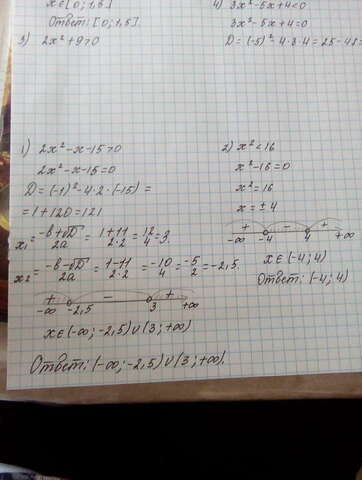 x∈[0; 1,5]
Ответ: [0; 1,5]
3) 2x²+9>0
4) 3x²-5x+4<0
3x²-5x+4=0
D=(-5)²-4·3·4=25-48=
1) 2x²-x-15>0
2x²-x-15=0
D=(-1)²-4·2·(-15)=
=1+120=121
x₁=(-b+√D)/2a=(1+11)/(2·2)=12/4=3.
x₂=(-b-√D)/2a=(1-11)/(2·2)=-10/4=-5/2=-2,5.
+ - +
-∞ -2,5 3 +∞
x∈(-∞; -2,5)∪(3; +∞)
Ответ: (-∞; -2,5)∪(3; +∞).
2) x²<16
x²-16=0
x²=16
x=±4
+ - +
-∞ -4 4 +∞
x∈(-4; 4)
Ответ: (-4; 4)